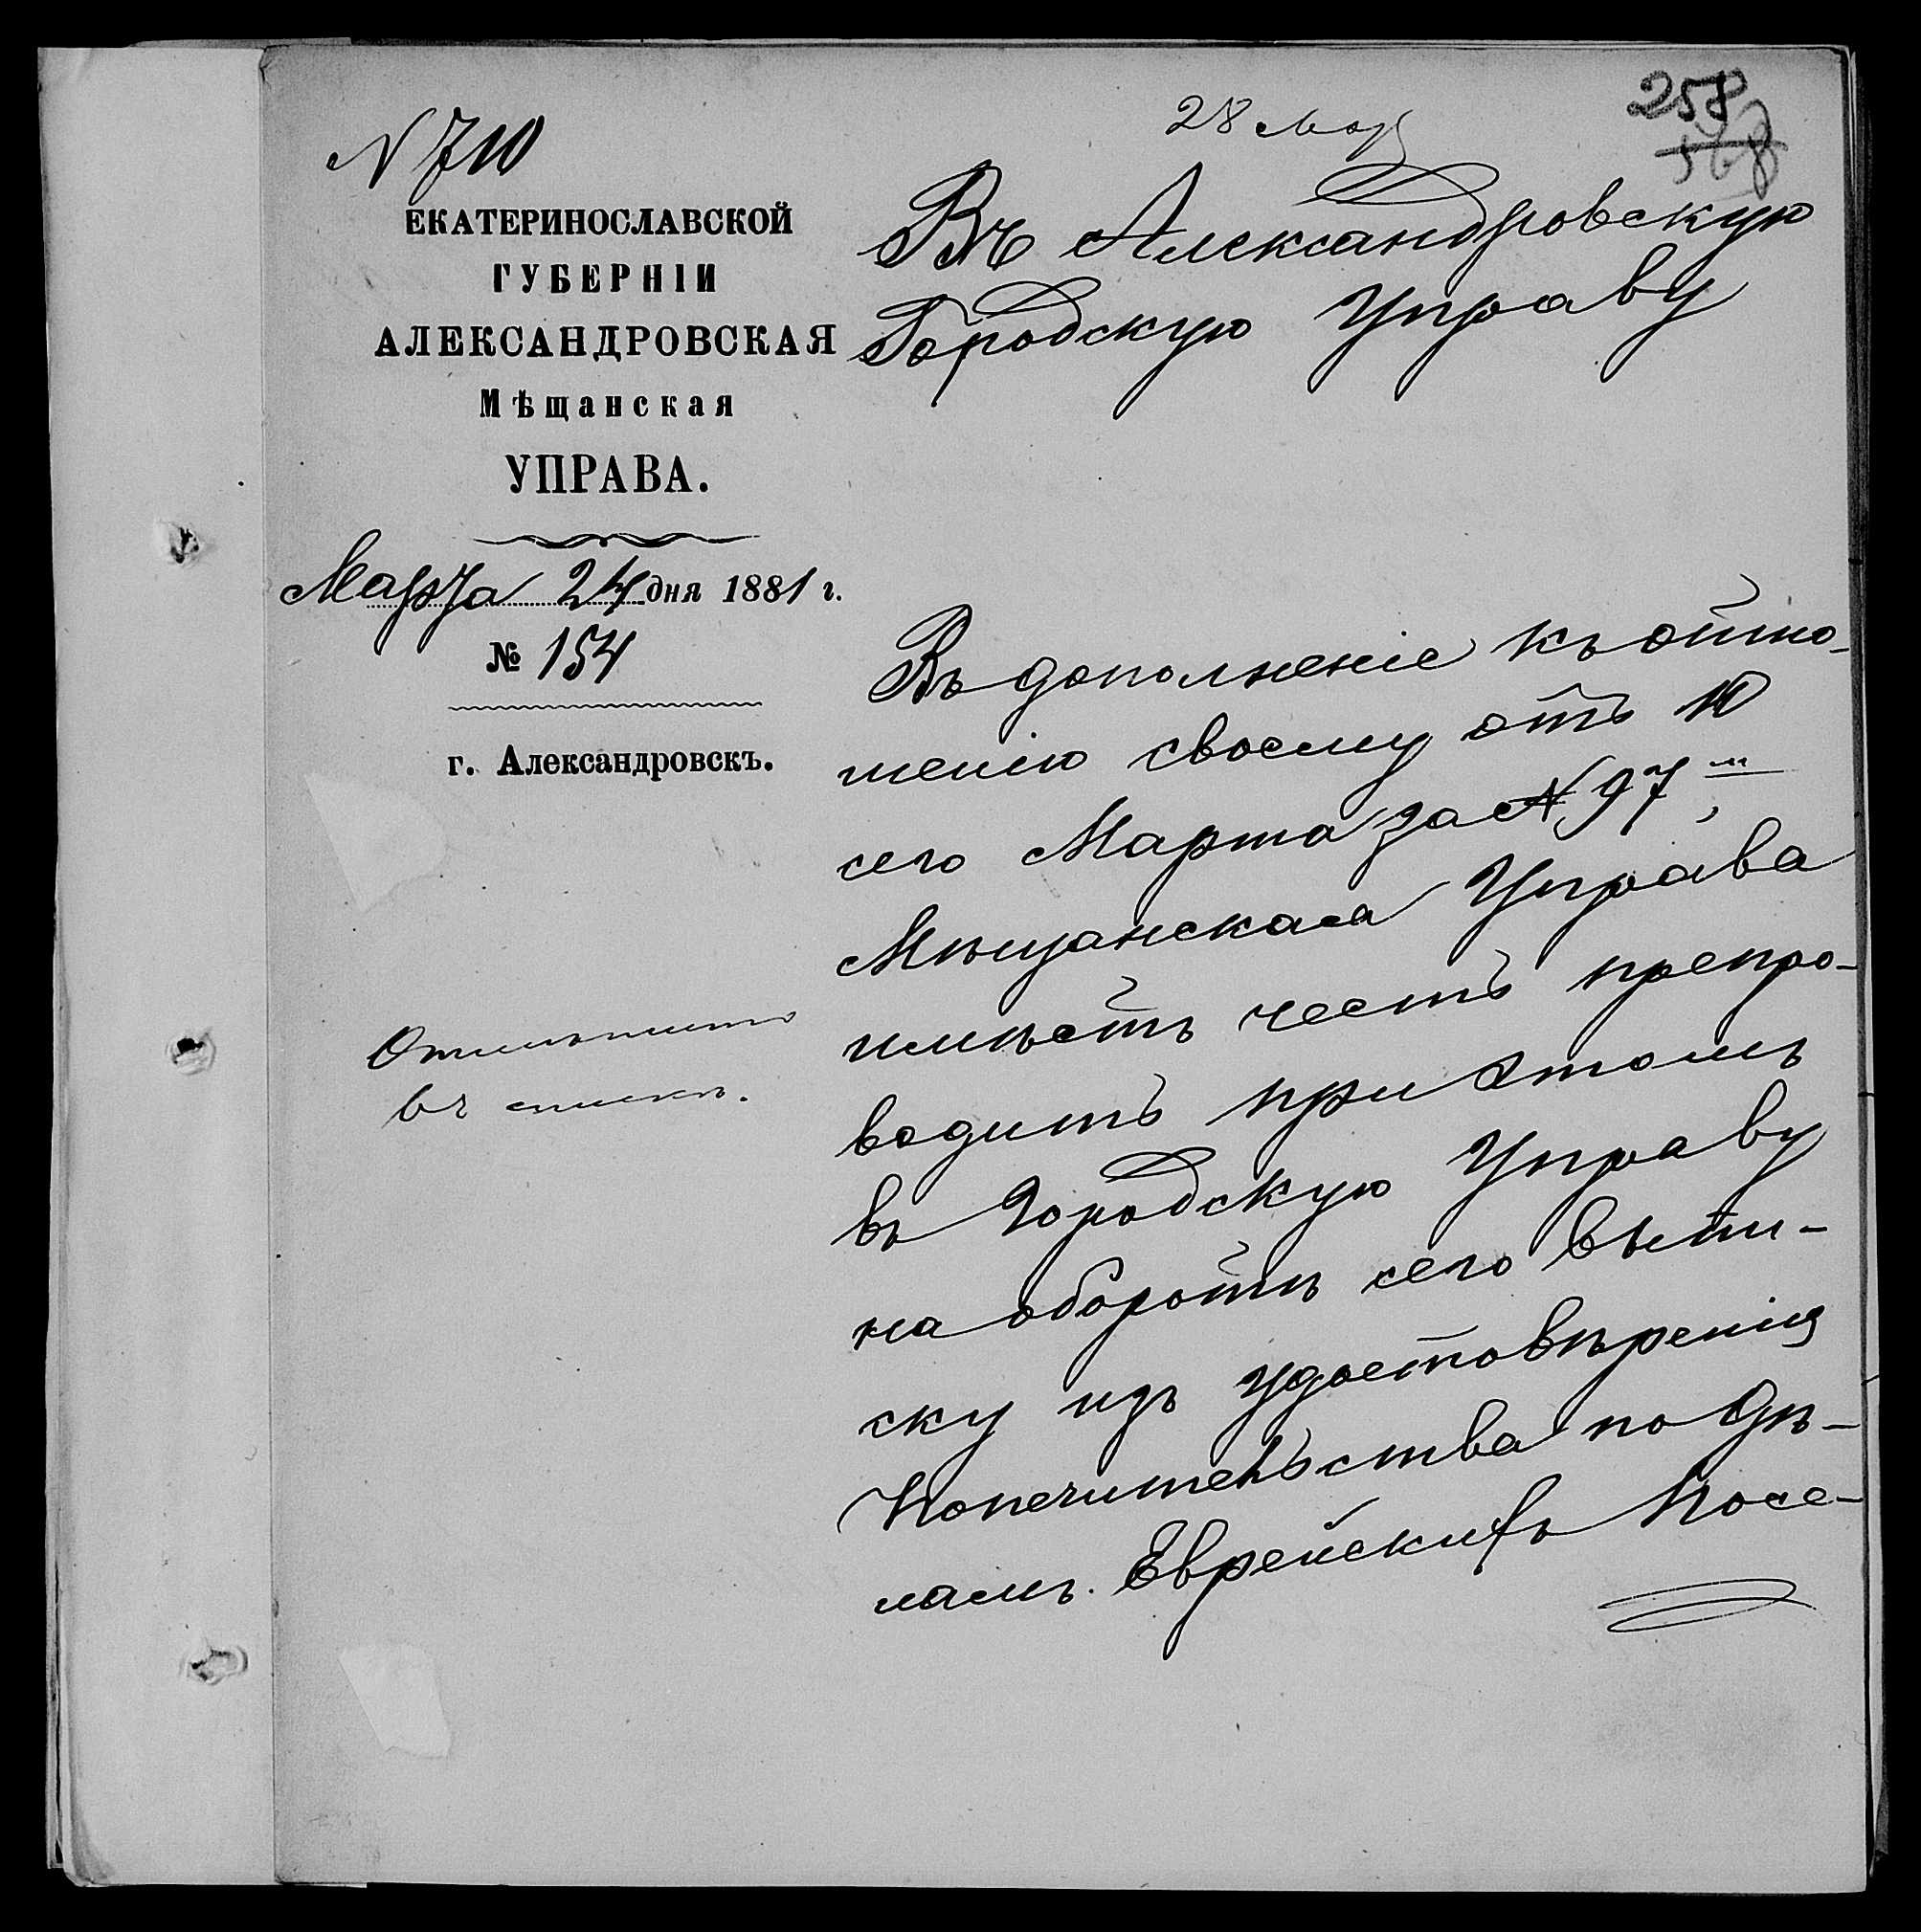 28 Мар
258
568
N 710
ЕКАТЕРИНОСЛАВСКОЙ
ГУБЕРНІИ
АЛЕКСАНДРОВСКАЯ
Мѣщанская
УПРАВА.
Марта 24 дня 1881 г.
№ 154
г. Александровскъ.
Въ Александровскую
Городскую Управу
Въ дополненіе къ отно-
шенію своему отъ 10
сего Марта за № 97м,
Мѣщанская Управа
имѣетъ честь препро-
водить при этомъ
въ Городскую Управу
на оборотѣ сего выпи-
ску изъ удостовѣренія
Попечительства по дѣ-
ламъ Еврейскихъ Посе-
Отмѣтить
въ спискѣ.